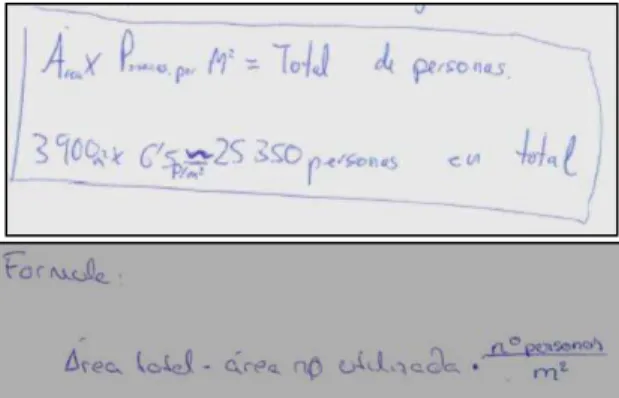 Área x Personas por M² = Total de personas.
3900m² x 6'5 P/m² ≈ 25350 personas en total
Formula:
Área total - área no utilizada · nº personas / m²